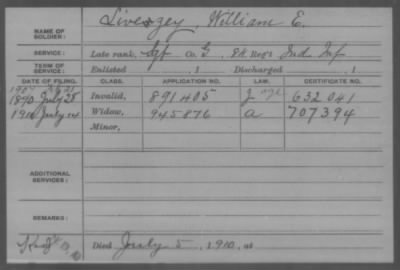 NAME OF SOLDIER: Livezey, William E.
SERVICE: Late rank, Sgt Co. G, 84 Reg't Ind Inf
TERM OF SERVICE: Enlisted , 1 Discharged , 1
DATE OF FILING. CLASS. APPLICATION NO. LAW. CERTIFICATE NO.
1890 July 28 Invalid, 891405 632041
1910 July 14 Widow, 945876 a 707394
Minor,
ADDITIONAL SERVICES:
REMARKS:
Died July 5, 1910, at